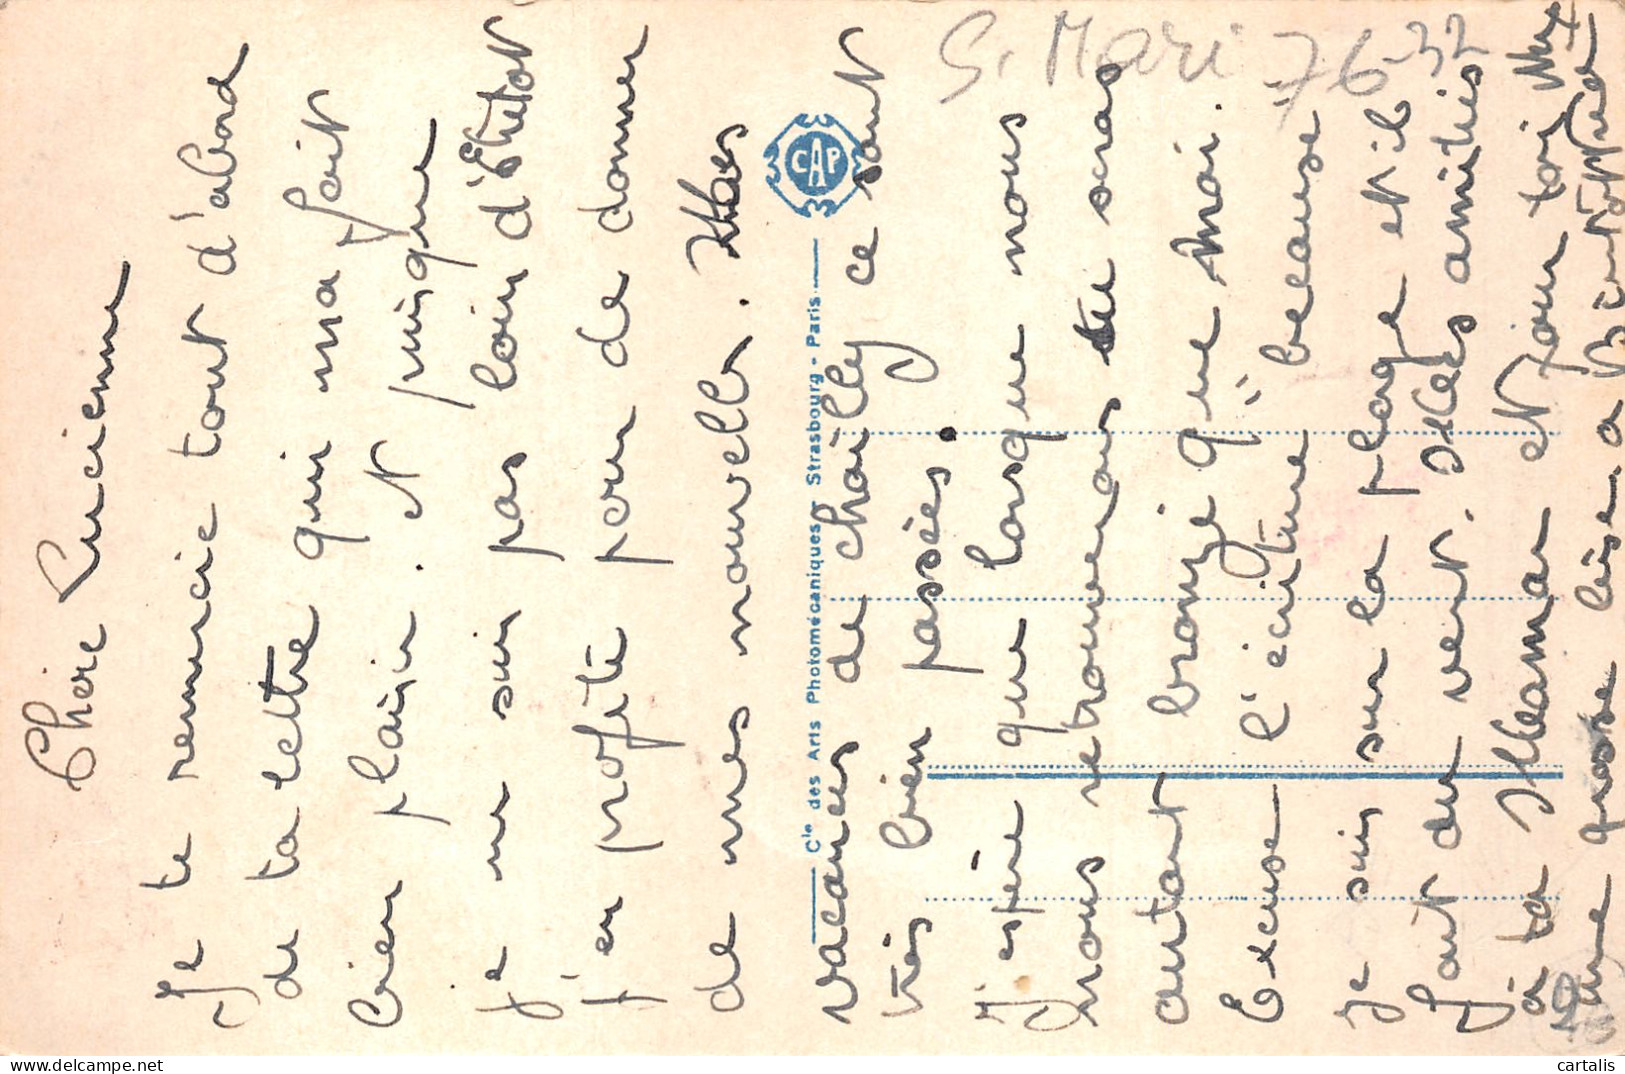 Chère Lucienne
Je te remercie tout d'abord
de ta lettre qui ma fait
bien plaisir. et puisque
je ne suis pas loin d'étretat
j'en profite pour de donner
de mes nouvells. Mes
vacances de chailly ce sont
très bien passées.
J'espère que lorsque nous
nous retrouverons tu seras
autant bronzé que moi.
Excuse l'écriture beause
je suis sur la plage et il
fait du vent. Mes amitiés
à ta Maman et pour toi
une grosse bise. a Bientot
S. Mari 76-32
Cie des Arts Photomécaniques Strasbourg - Paris
CAP
cartalis